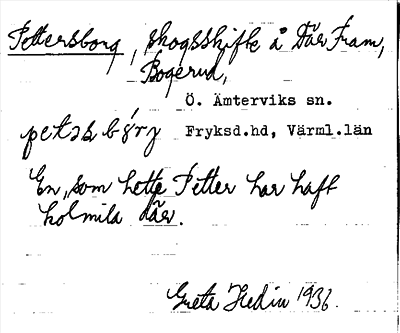 Pettersborg, skogsskifte å Där Fram,
Bogerud,
Ö. Ämterviks sn.
petəʂ bórj Fryksd.hd, Värml.län
En, som hette Petter har haft
kolmila där.
Greta Hedin 1936.